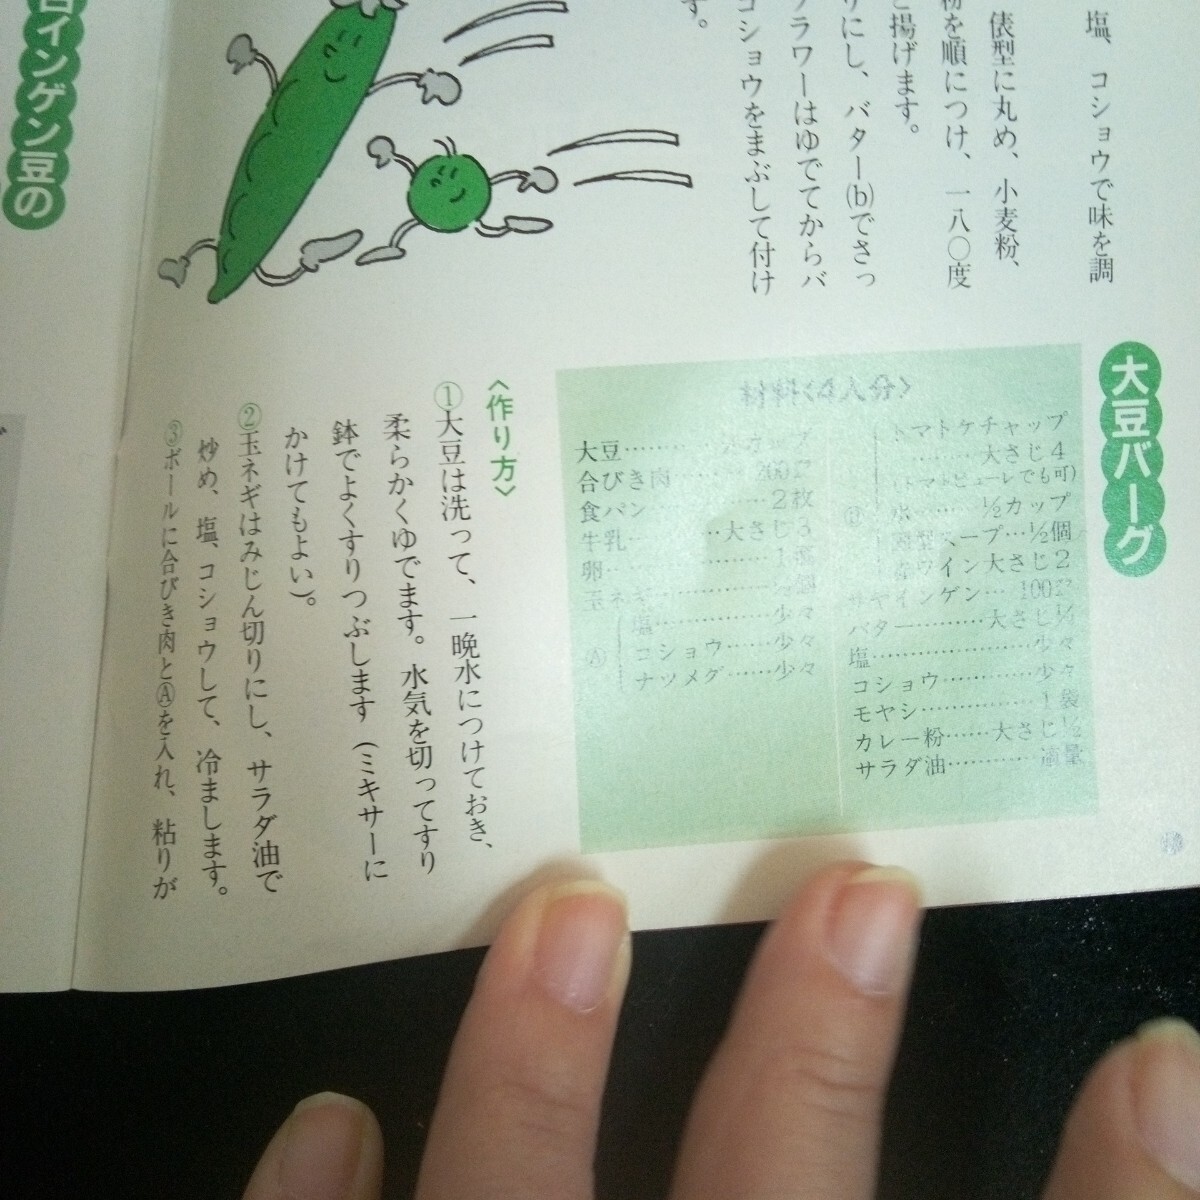 塩、コショウで味を調
俵型に丸め、小麦粉、
粉を順につけ、一八〇度
揚げます。
りにし、バター(b)でさっ
ラワーはゆでてからバ
コショウをまぶして付け
す。
大豆バーグ
トマトケチャップ
………大さじ4
(トマトピューレでも可)
水……½カップ
固型スープ…½個
ワイン 大さじ2
サヤインゲン…100㌘
バター………大さじ
塩…………少々
コショウ…………少々
モヤシ…………1袋
カレー粉……大さじ½
サラダ油…………適量
大豆………カップ
合びき肉……200㌘
食パン…………2枚
牛乳………大さじ3
卵…………1
玉ネギ…………個
Ⓐ
塩…………少々
コショウ……少々
ナツメグ……少々
〈作り方〉
①大豆は洗って、一晩水につけておき、
柔らかくゆでます。水気を切ってすり
鉢でよくすりつぶします(ミキサーに
かけてもよい)。
②玉ネギはみじん切りにし、サラダ油で
炒め、塩、コショウして、冷まします。
③ボールに合びき肉とⒶを入れ、粘りが
インゲン豆の